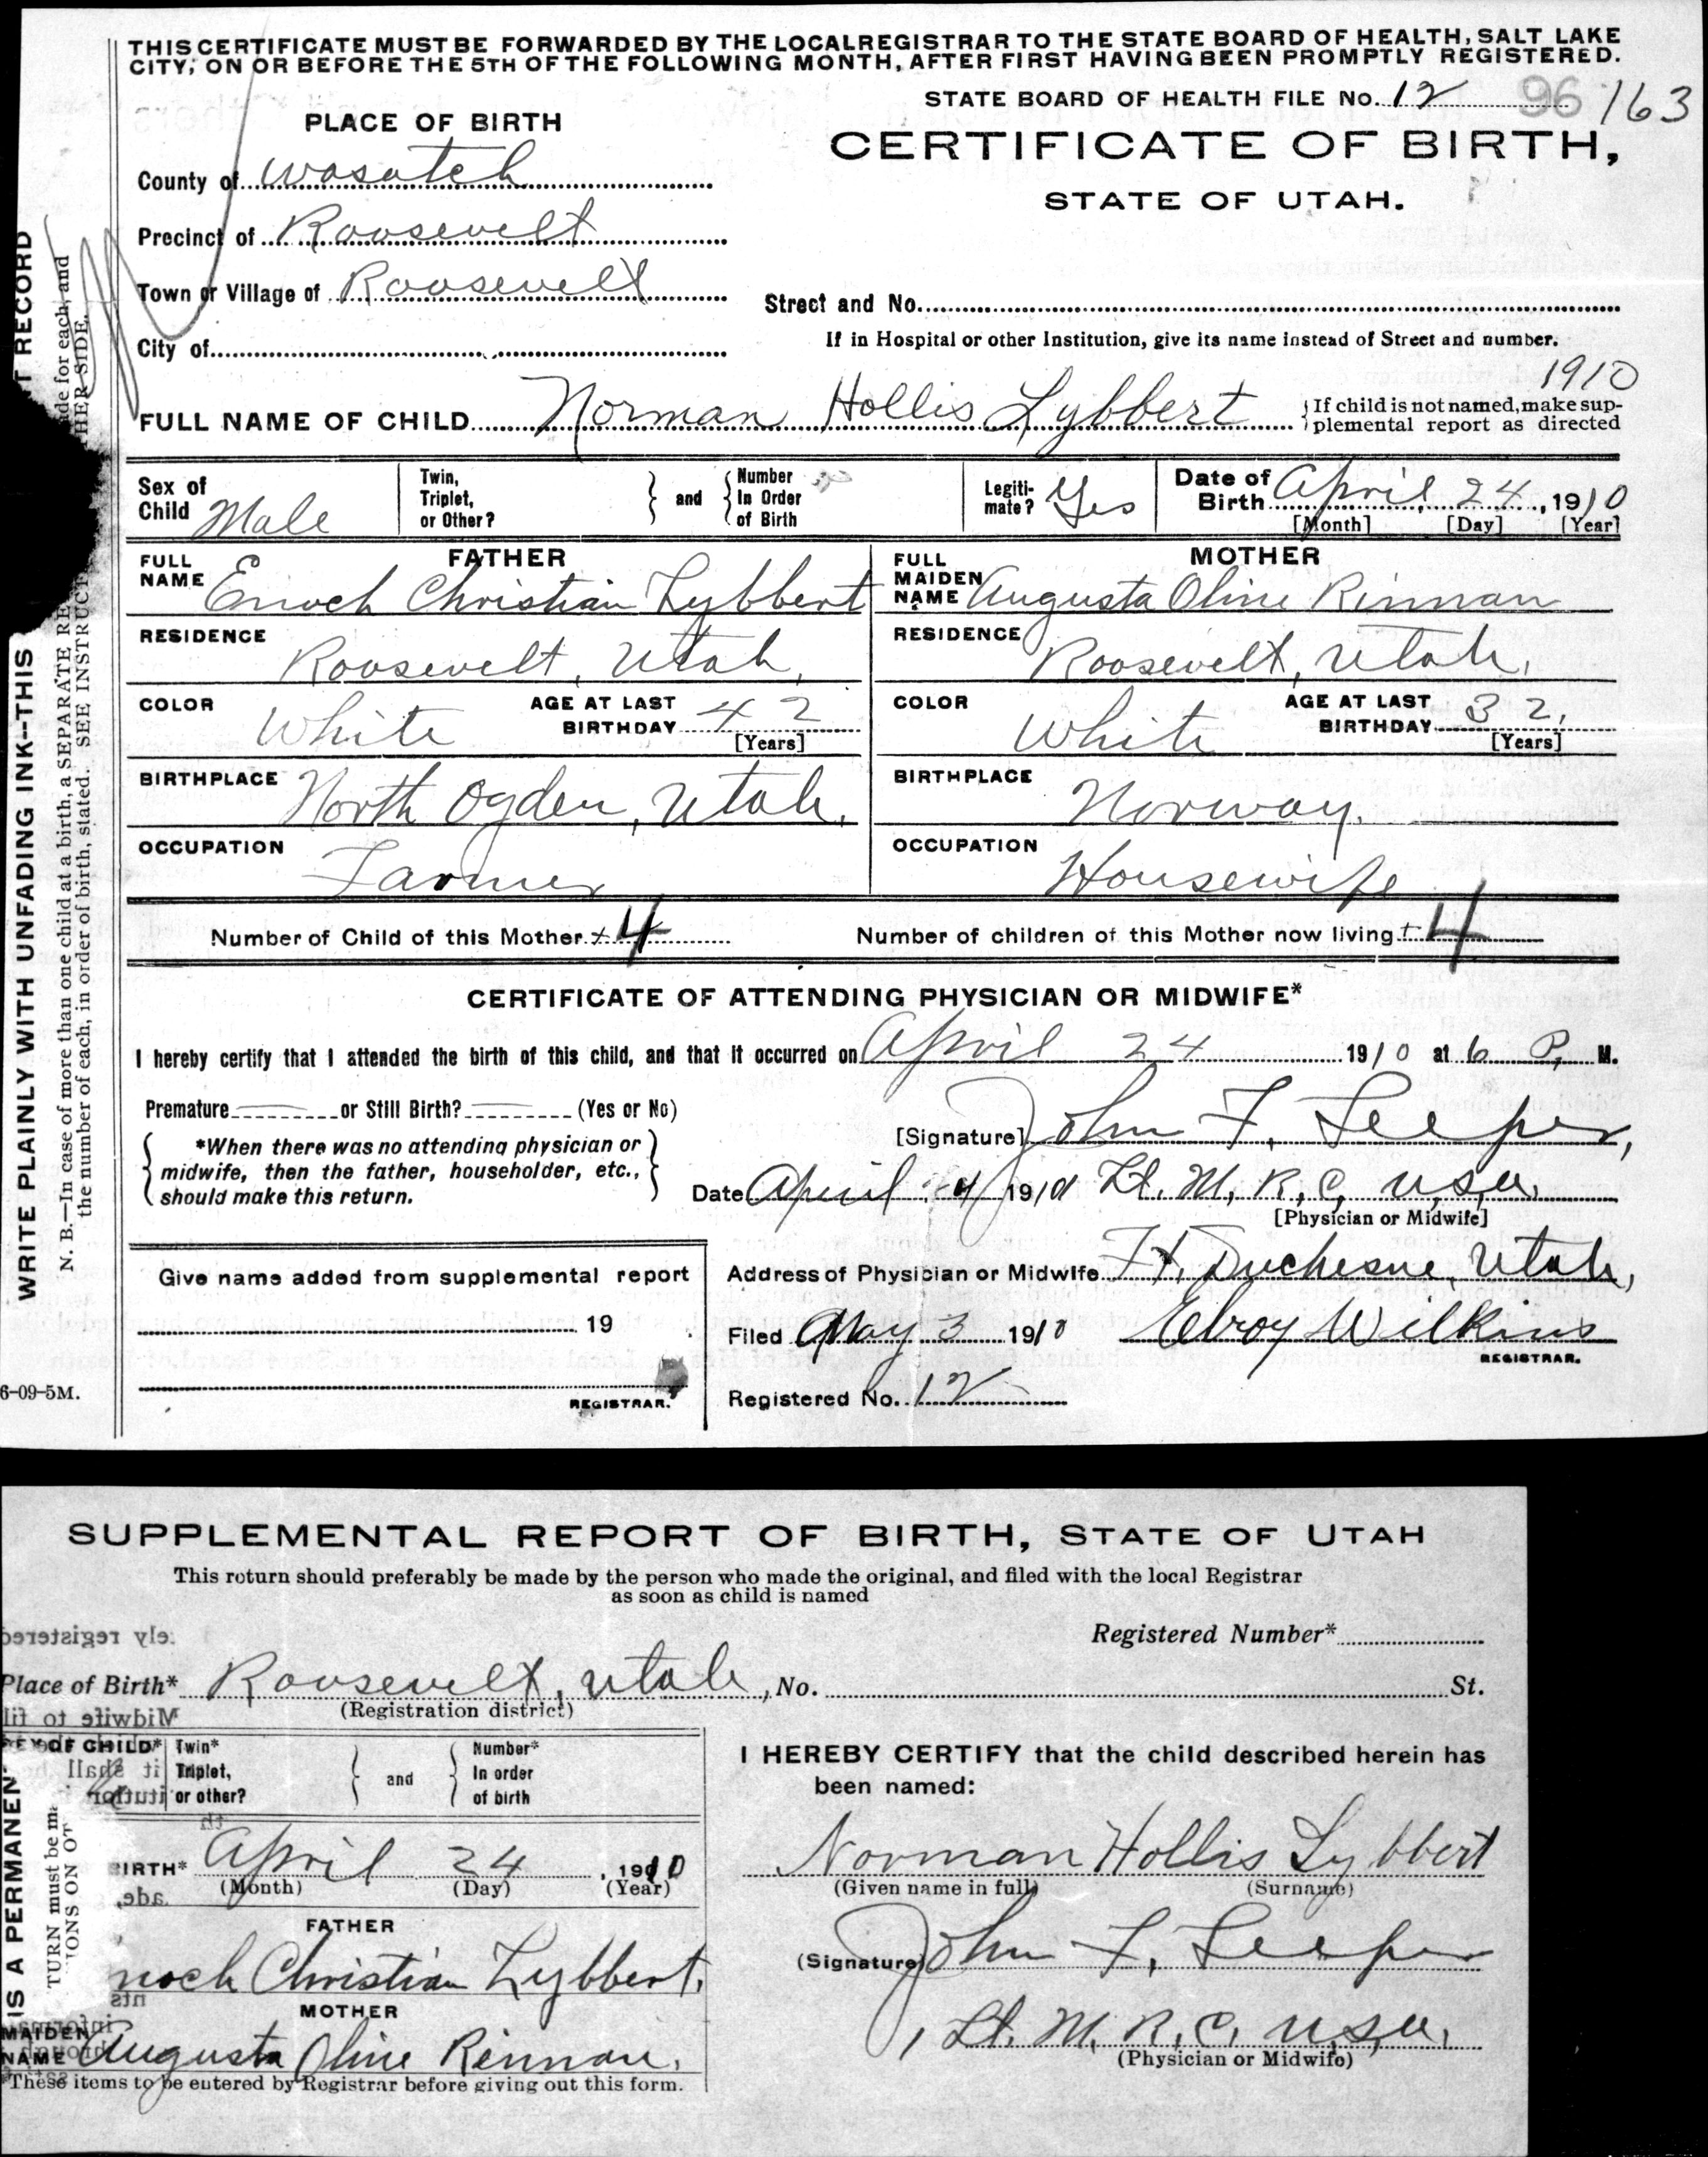 THIS CERTIFICATE MUST BE FORWARDED BY THE LOCAL REGISTRAR TO THE STATE BOARD OF HEALTH, SALT LAKE
CITY, ON OR BEFORE THE 5TH OF THE FOLLOWING MONTH, AFTER FIRST HAVING BEEN PROMPTLY REGISTERED.
STATE BOARD OF HEALTH FILE No. 12 96 163
PLACE OF BIRTH
CERTIFICATE OF BIRTH,
STATE OF UTAH.
County of Wasatch
Precinct of Roosevelt
Town or Village of Roosevelt
Street and No.
City of
If in Hospital or other Institution, give its name instead of Street and number.
1910
FULL NAME OF CHILD Norman Hollis Lybbert
If child is not named, make sup-
plemental report as directed
Sex of Child Male
Twin, Triplet, or Other?
and
Number In Order of Birth
Legiti-mate? Yes
Date of Birth April 24, 1910
[Month] [Day] [Year]
FATHER
FULL NAME Enoch Christian Lybbert
RESIDENCE Roosevelt, Utah,
COLOR White AGE AT LAST BIRTHDAY 42 [Years]
BIRTHPLACE North Ogden, Utah.
OCCUPATION Farmer
MOTHER
FULL MAIDEN NAME Augusta Oline Rinman
RESIDENCE Roosevelt, Utah.
COLOR White AGE AT LAST BIRTHDAY 32. [Years]
BIRTHPLACE Norway.
OCCUPATION Housewife
Number of Child of this Mother 4
Number of children of this Mother now living 4
CERTIFICATE OF ATTENDING PHYSICIAN OR MIDWIFE*
I hereby certify that I attended the birth of this child, and that it occurred on April 24 1910 at 6 P. M.
Premature or Still Birth? (Yes or No)
*When there was no attending physician or
midwife, then the father, householder, etc.,
should make this return.
[Signature] John F. Leeper,
Date April 1910 Lt. M. R. C. U.S.A.
[Physician or Midwife]
Address of Physician or Midwife Ft. Duchesne, Utah,
Give name added from supplemental report
19
REGISTRAR.
Filed May 3 1910 Elroy Wilkins
REGISTRAR.
Registered No. 12
6-09-5M.
WRITE PLAINLY WITH UNFADING INK--THIS
T RECORD
N. B.—In case of more than one child at a birth, a SEPARATE RE
ade for each, and
the number of each, in order of birth, stated. SEE INSTRUCT
HER SIDE.
SUPPLEMENTAL REPORT OF BIRTH, STATE OF UTAH
This return should preferably be made by the person who made the original, and filed with the local Registrar
as soon as child is named
Registered Number*
Place of Birth* Roosevelt, Utah, No. St.
(Registration district)
SEX OF CHILD*
Twin* Triplet, or other?
and
Number* In order of birth
BIRTH* April 24, 1910
(Month) (Day) (Year)
FATHER
noch Christian Lybbert.
MOTHER
MAIDEN NAME Augusta Oline Rinman.
*These items to be entered by Registrar before giving out this form.
I HEREBY CERTIFY that the child described herein has
been named:
Norman Hollis Lybbert
(Given name in full) (Surname)
(Signature) John F. Leeper
1 Lt. M. R. C. U.S.A.
(Physician or Midwife)
IS A PERMANEN
TURN must be m
IONS ON OT